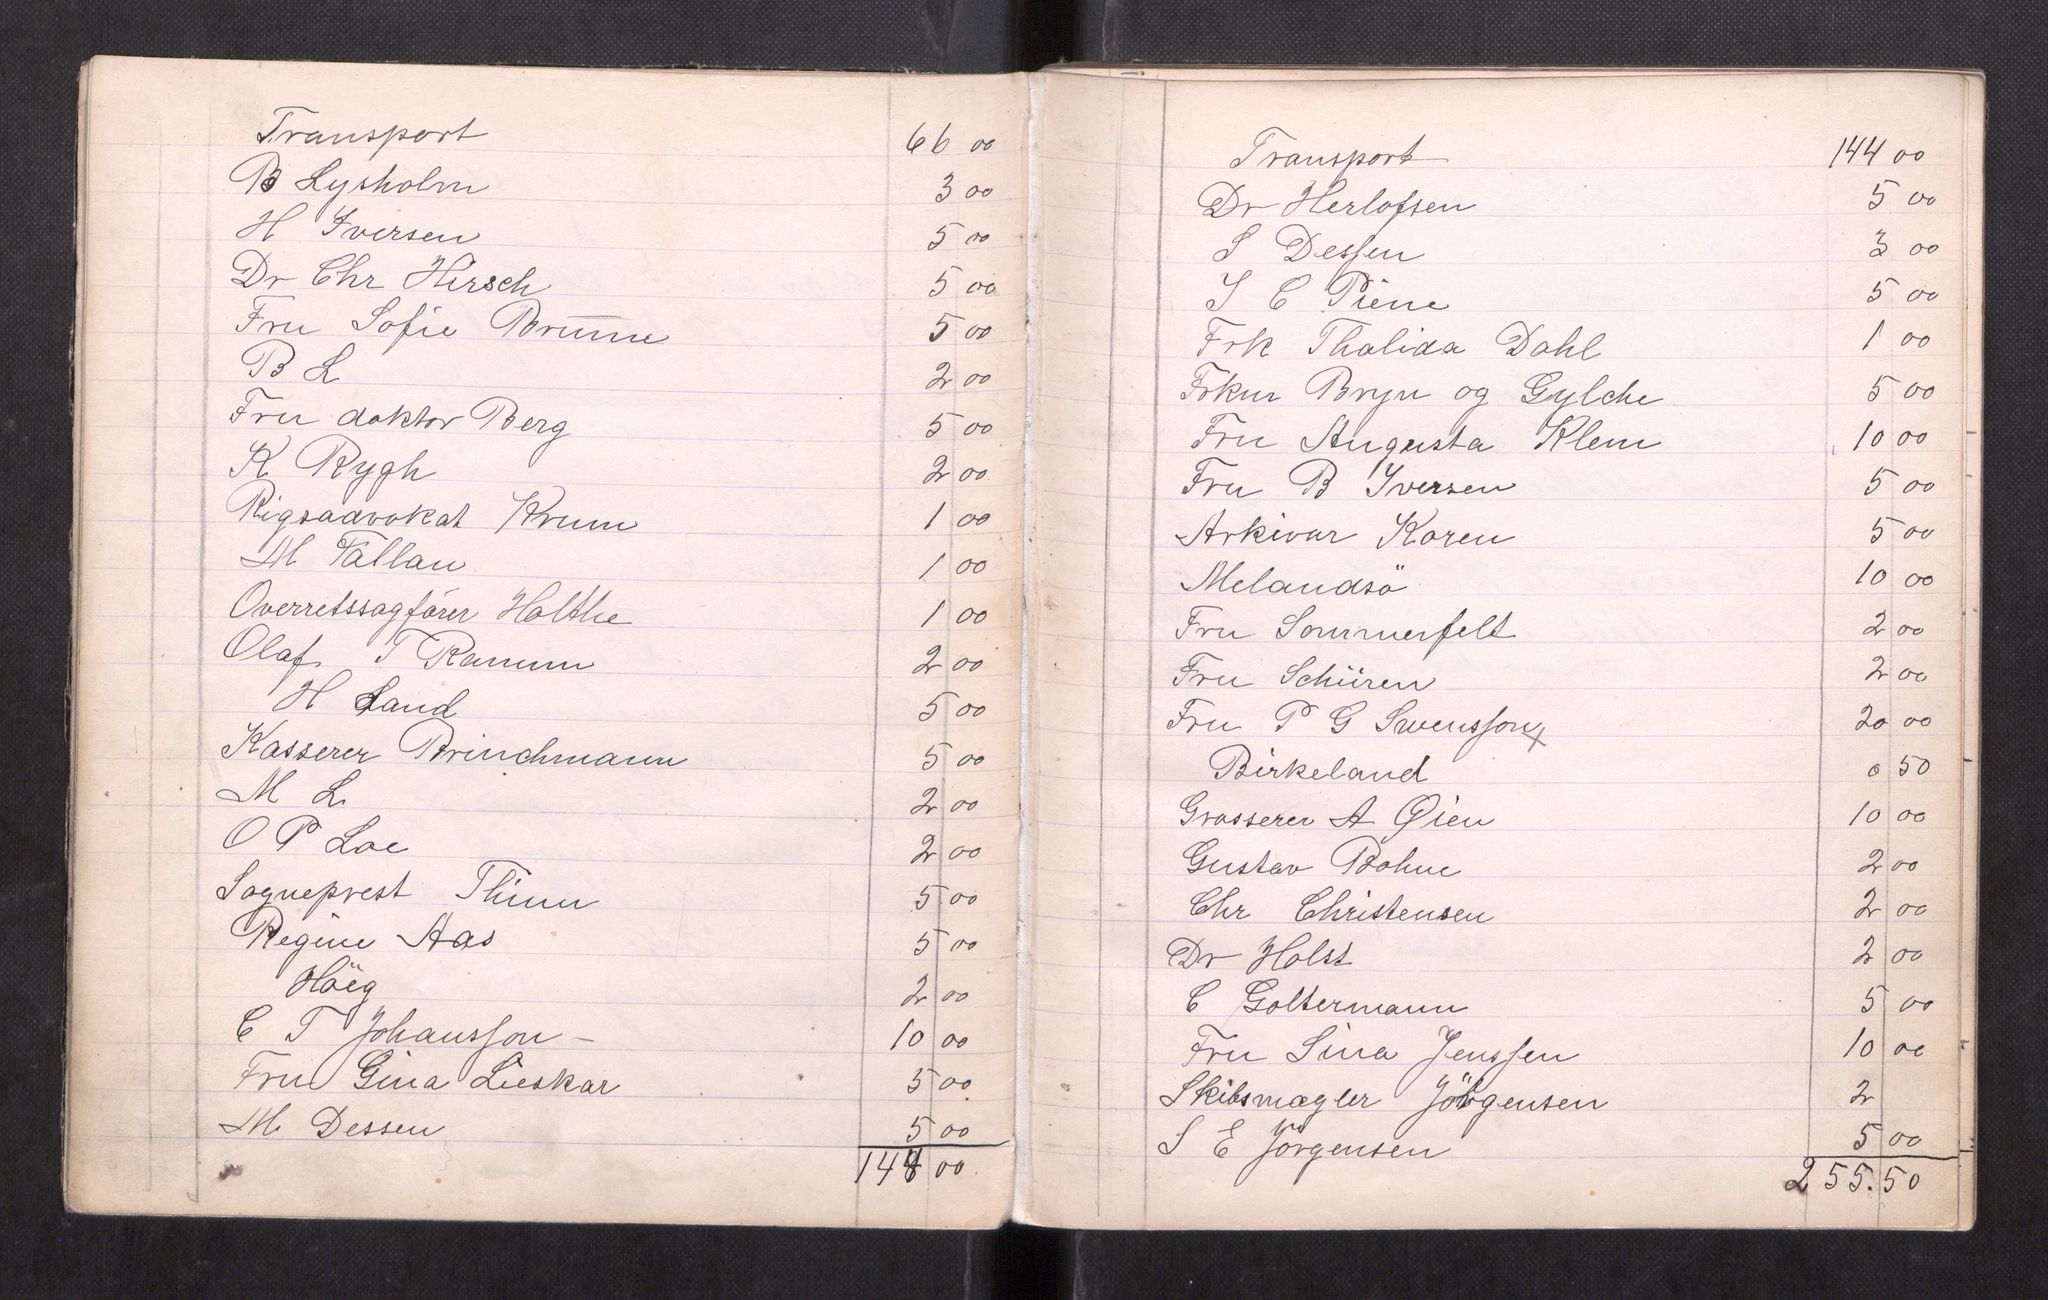 Transport 66 00
B Lysholm 3 00
H Iversen 5 00
Dr Chr Hirsch 5 00
Fru Sofie Brunne 5 00
B L 2 00
Fru doktor Berg 5 00
K Rygh 2 00
Rigsadvokat Krum 1 00
M Tallan 1 00
Overretssagfører Holthe 1 00
Olaf T Ramm 2 00
H Sand 5 00
Kasserer Brinchmann 5 00
M L 2 00
O P Loe 2 00
Sogneprest Thinn 5 00
Regine Aas 5 00
Höeg 2 00
C T Johansson - 10 00
Fru Gina Lieskar 5 00
M Dessen 5 00
144 00
Transport 144 00
Dr Herlofsen 5 00
S Dessen 3 00
I C Piene 5 00
Frk Thalida Dahl 1 00
Frknr Bryn og Gylche 5 00
Fru Augusta Klem 10 00
Fru B Iversen 5 00
Arkivar Koren 5 00
Melandsö 10 00
Fru Sommerfelt 2 00
Fru Schüren 2 00
Fru P G Svensson x 20 00
Birkeland 0 50
Grosserer A Øien 10 00
Gustav Bohne 2 00
Chr Christensen 2 00
Dr Holst 2 00
C Goltermann 5 00
Fru Sina Jenssen 10 00
Skibsmægler Jörgensen 2
S E Jörgensen 5 00
255.50